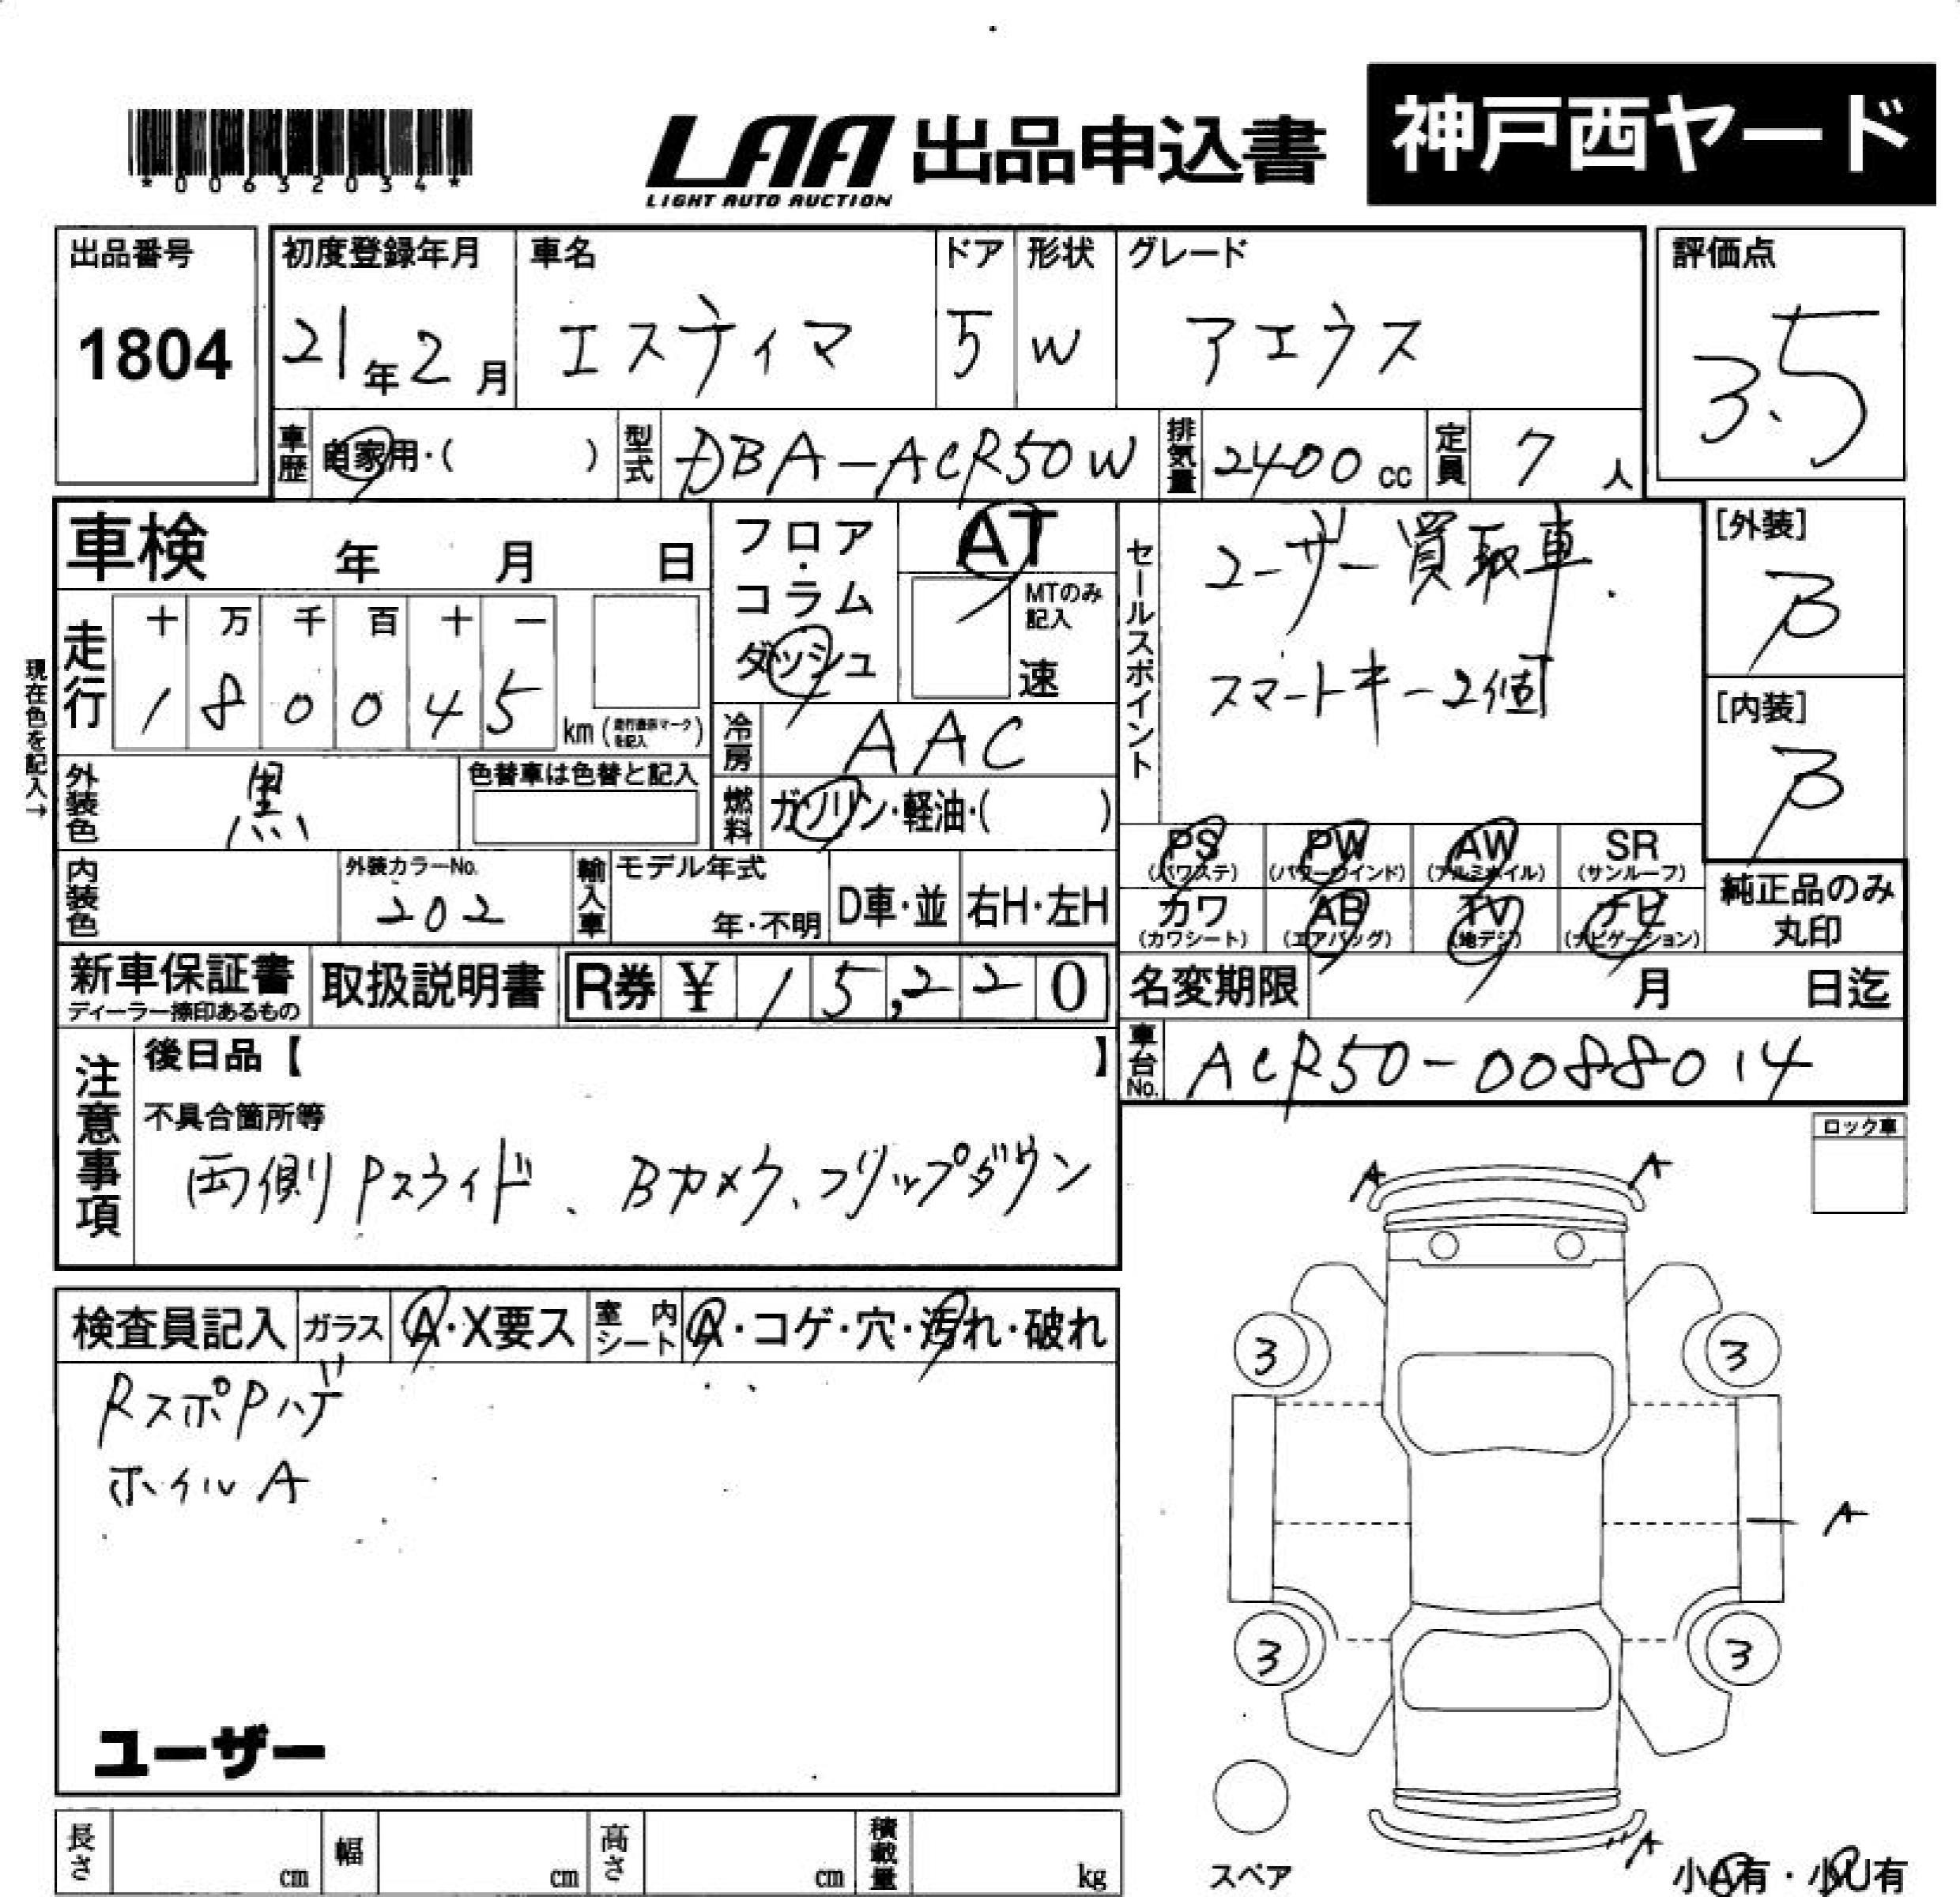 *00632034*
LAA 出品申込書
LIGHT AUTO AUCTION
神戸西ヤード
出品番号
1804
初度登録年月
21年2月
車名
エスティマ
ドア
5
形状
W
グレード
アエラス
評価点
3.5
車歴 自家用・( )
型式 DBA-ACR50W
排気量 2400cc
定員 7人
車検 年 月 日
現在色を記入→
走行 十 万 千 百 十 一
1 8 0 0 4 5 km(走行表示マークを記入)
フロア・コラム
ダッシュ
AT
MTのみ記入
速
冷房 AAC
燃料 ガソリン・軽油・( )
セールスポイント
ユーザー買取車.
スマートキー2個
[外装]
B
[内装]
B
外装色 黒
色替車は色替と記入
内装色
外装カラーNo.
202
輸入車 モデル年式
年・不明
D車・並
右H・左H
PS (パワステ)
PW (パワーウインド)
AW (アルミホイル)
SR (サンルーフ)
カワ (カワシート)
AB (エアバッグ)
TV (地デジ)
ナビ (ナビゲーション)
純正品のみ
丸印
新車保証書
ディーラー捺印あるもの
取扱説明書
R券 ¥ 1 5,2 2 0
名変期限 月 日迄
車台No. ACR50-0088014
注意事項
後日品【 】
不具合箇所等
両側Pスライド、Bカメラ、フリップダウン
ロック車
検査員記入 ガラス A・X要ス 室内シート A・コゲ・穴・汚れ・破れ
RスポPハゲ
ホイルA
ユーザー
A A
3 3
A
3 3
A
スペア
小A有・小U有
長さ cm 幅 cm 高さ cm 積載量 kg